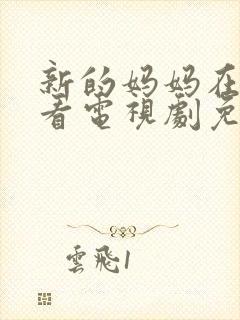 新的妈妈在
看電視劇免
雲飛1